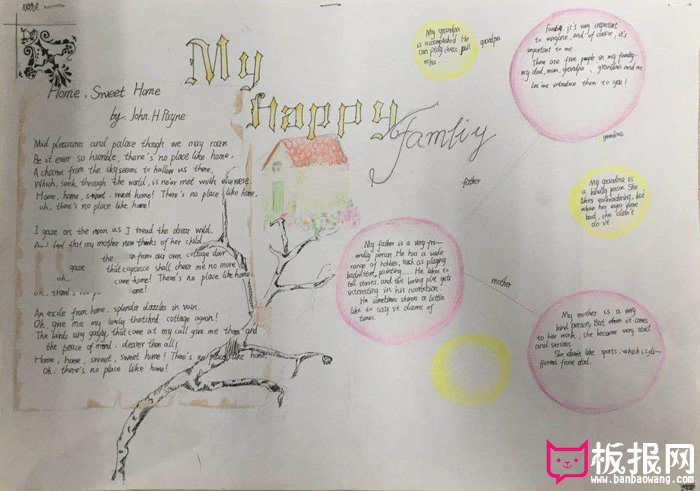 My
Happy
Famliy
Home, Sweet Home
by: John.H.Payne
Mid pleasures and palace though we may roam
Be it ever so humble, there's no place like home.
A charm from the sky seems to hallow us there.
Which, seek through the world, is ne'er met with elsewhere.
Home, home, sweet, sweet home! There's no place like home,
oh, there's no place like home!
I gaze on the moon as I tread the drear wild,
And feel that my mother now thinks of her child
the from our own cottage door
gaze that cognance shall cheer me no more
oh, home! There's no place like home
oh, there's no
An exile from home, splendor dazzles in vain.
Oh give me my lowly thatched cottage again!
The birds sing gayly, that came at my call give me them and
the peace of mind, dearer than all!
Home, home, sweet, sweet home! There's no place like home,
Oh, there's no place like home!
My grandpa
is accomplished. He
can play chess,
grandpa
Family, it's very important
to everyone, and of course, it's
important to me.
There are five people in my family:
my dad, mom, grandpa, grandma and me
Let me introduce them to you!
grandma
father
My grandma is
a kindly person. She
likes exercising, but
when her eyes
bad, she didn't
do it.
My father is a very fri-
endly person. He has a wide
range of hobbies, such as playing
basketball, painting...... He likes to
tell stories, and the boring plot gets
interesting in his narration.
He sometimes stories a little
like to say it dozens of
times.
mother
My mother is a very
kind person. But when it comes
to her work, she became very strict
and serious.
She dislike like sports, which is di-
fferent from dad.
板报网
www.banbaowang.com